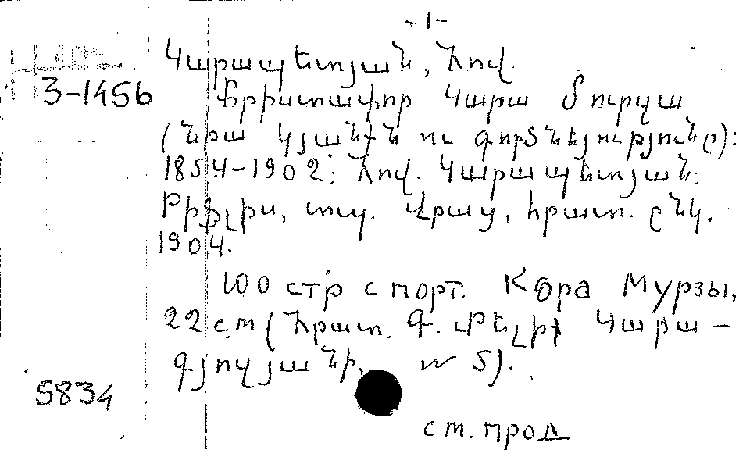 -1-
Կարապետյան, Հով.
3-1456
Քրիստափոր Կարա Մուրզա
(Նրա կյանքն ու գործնեյությունը):
1854-1902: Հով. Կարապետյան:
Թիֆլիս, տպ. Վրաց, հրատ. ընկ.
1904.
100 стр с порт. Кара Мурзы,
22 см (Հրատ. Գ. Մելիք Կարա-
գյոզյանի, № 5).
5834
см. прод